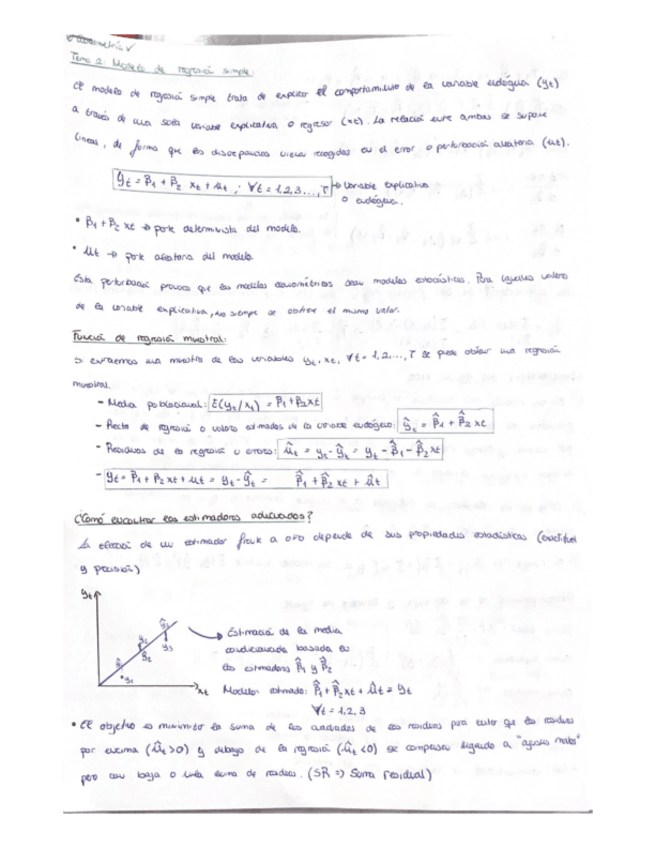 Econometría ✓
Tema 2: Modelo de regresión simple:
El modelo de regresión simple trata de explicar el comportamiento de la variable endógena (yt)
a través de una sola variable explicativa o regresor (xt). La relación entre ambas se supone
lineal, de forma que las discrepancias vienen recogidas en el error o perturbación aleatoria (ut).
yt = β1 + β2 xt + ut ; ∀t = 1,2,3...,T → Variable explicativa
o endógena.
• β1 + β2 xt → parte determinista del modelo.
• ut → parte aleatoria del modelo.
Esta perturbación provoca que los modelos econométricos sean modelos estocásticos. Para iguales valores
de la variable explicativa, no siempre se obtiene el mismo valor.
Función de regresión muestral:
Si extraemos una muestra de las variables yt, xt, ∀t = 1,2,...,T se puede obtener una regresión
muestral.
- Media poblacional: E(yt/xt) = β1 + β2xt
- Recta de regresión o valores estimados de la variable endógena: ŷt = β̂1 + β̂2 xt
- Residuos de la regresión o errores: ût = yt - ŷt = yt - β̂1 - β̂2xt
- yt = β1 + β2 xt + ut = yt - ŷt = β̂1 + β̂2 xt + ût
¿Cómo encontrar los estimadores adecuados?
La elección de un estimador frente a otro depende de sus propiedades estadísticas (exactitud
y precisión)
yt
ŷ3
y2
ŷ2
y3
ŷ1
y1
xt
→ Estimación de la media
condicionada basada en
los estimadores β̂1 y β̂2
Modelo estimado: β̂1 + β̂2xt + ût = yt
∀t = 1,2,3
• El objetivo es minimizar la suma de los cuadrados de los residuos para evitar que los residuos
por encima (ût>0) y debajo de la regresión (ût<0) se compensen llegando a "ajustes malos"
pero con baja o nula suma de residuos. (SR => Suma residual)